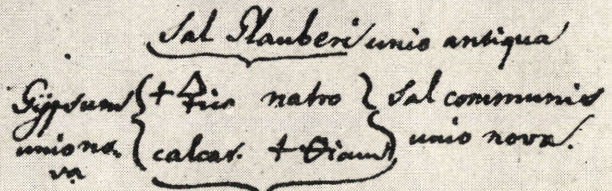 Sal Glauberi unio antiqua
Gÿpsum unio nova
natro
calcar.
Sal communis unio nova.